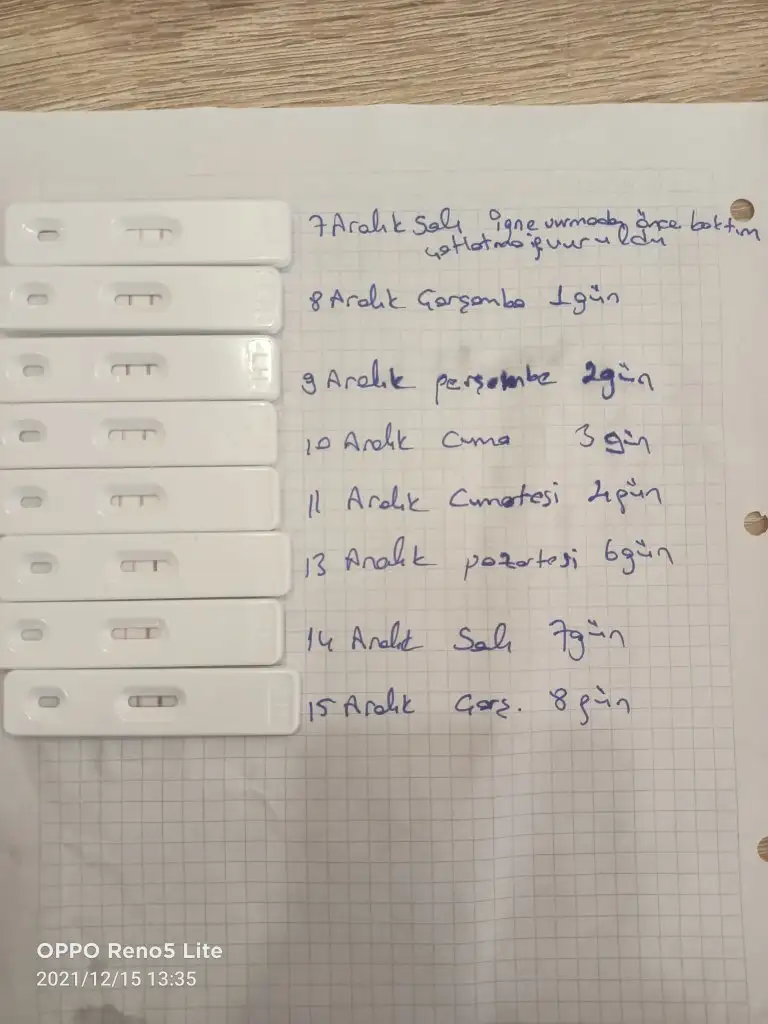 7 Aralık Salı iğne vurmadan önce baktım
çatlatma iğ vuruldu
8 Aralık Çarşamba 1 gün
9 Aralık perşembe 2 gün
10 Aralık Cuma 3 gün
11 Aralık Cumartesi 4 gün
13 Aralık pazartesi 6 gün
14 Aralık Salı 7 gün
15 Aralık Çarş. 8 gün
OPPO Reno5 Lite
2021/12/15 13:35